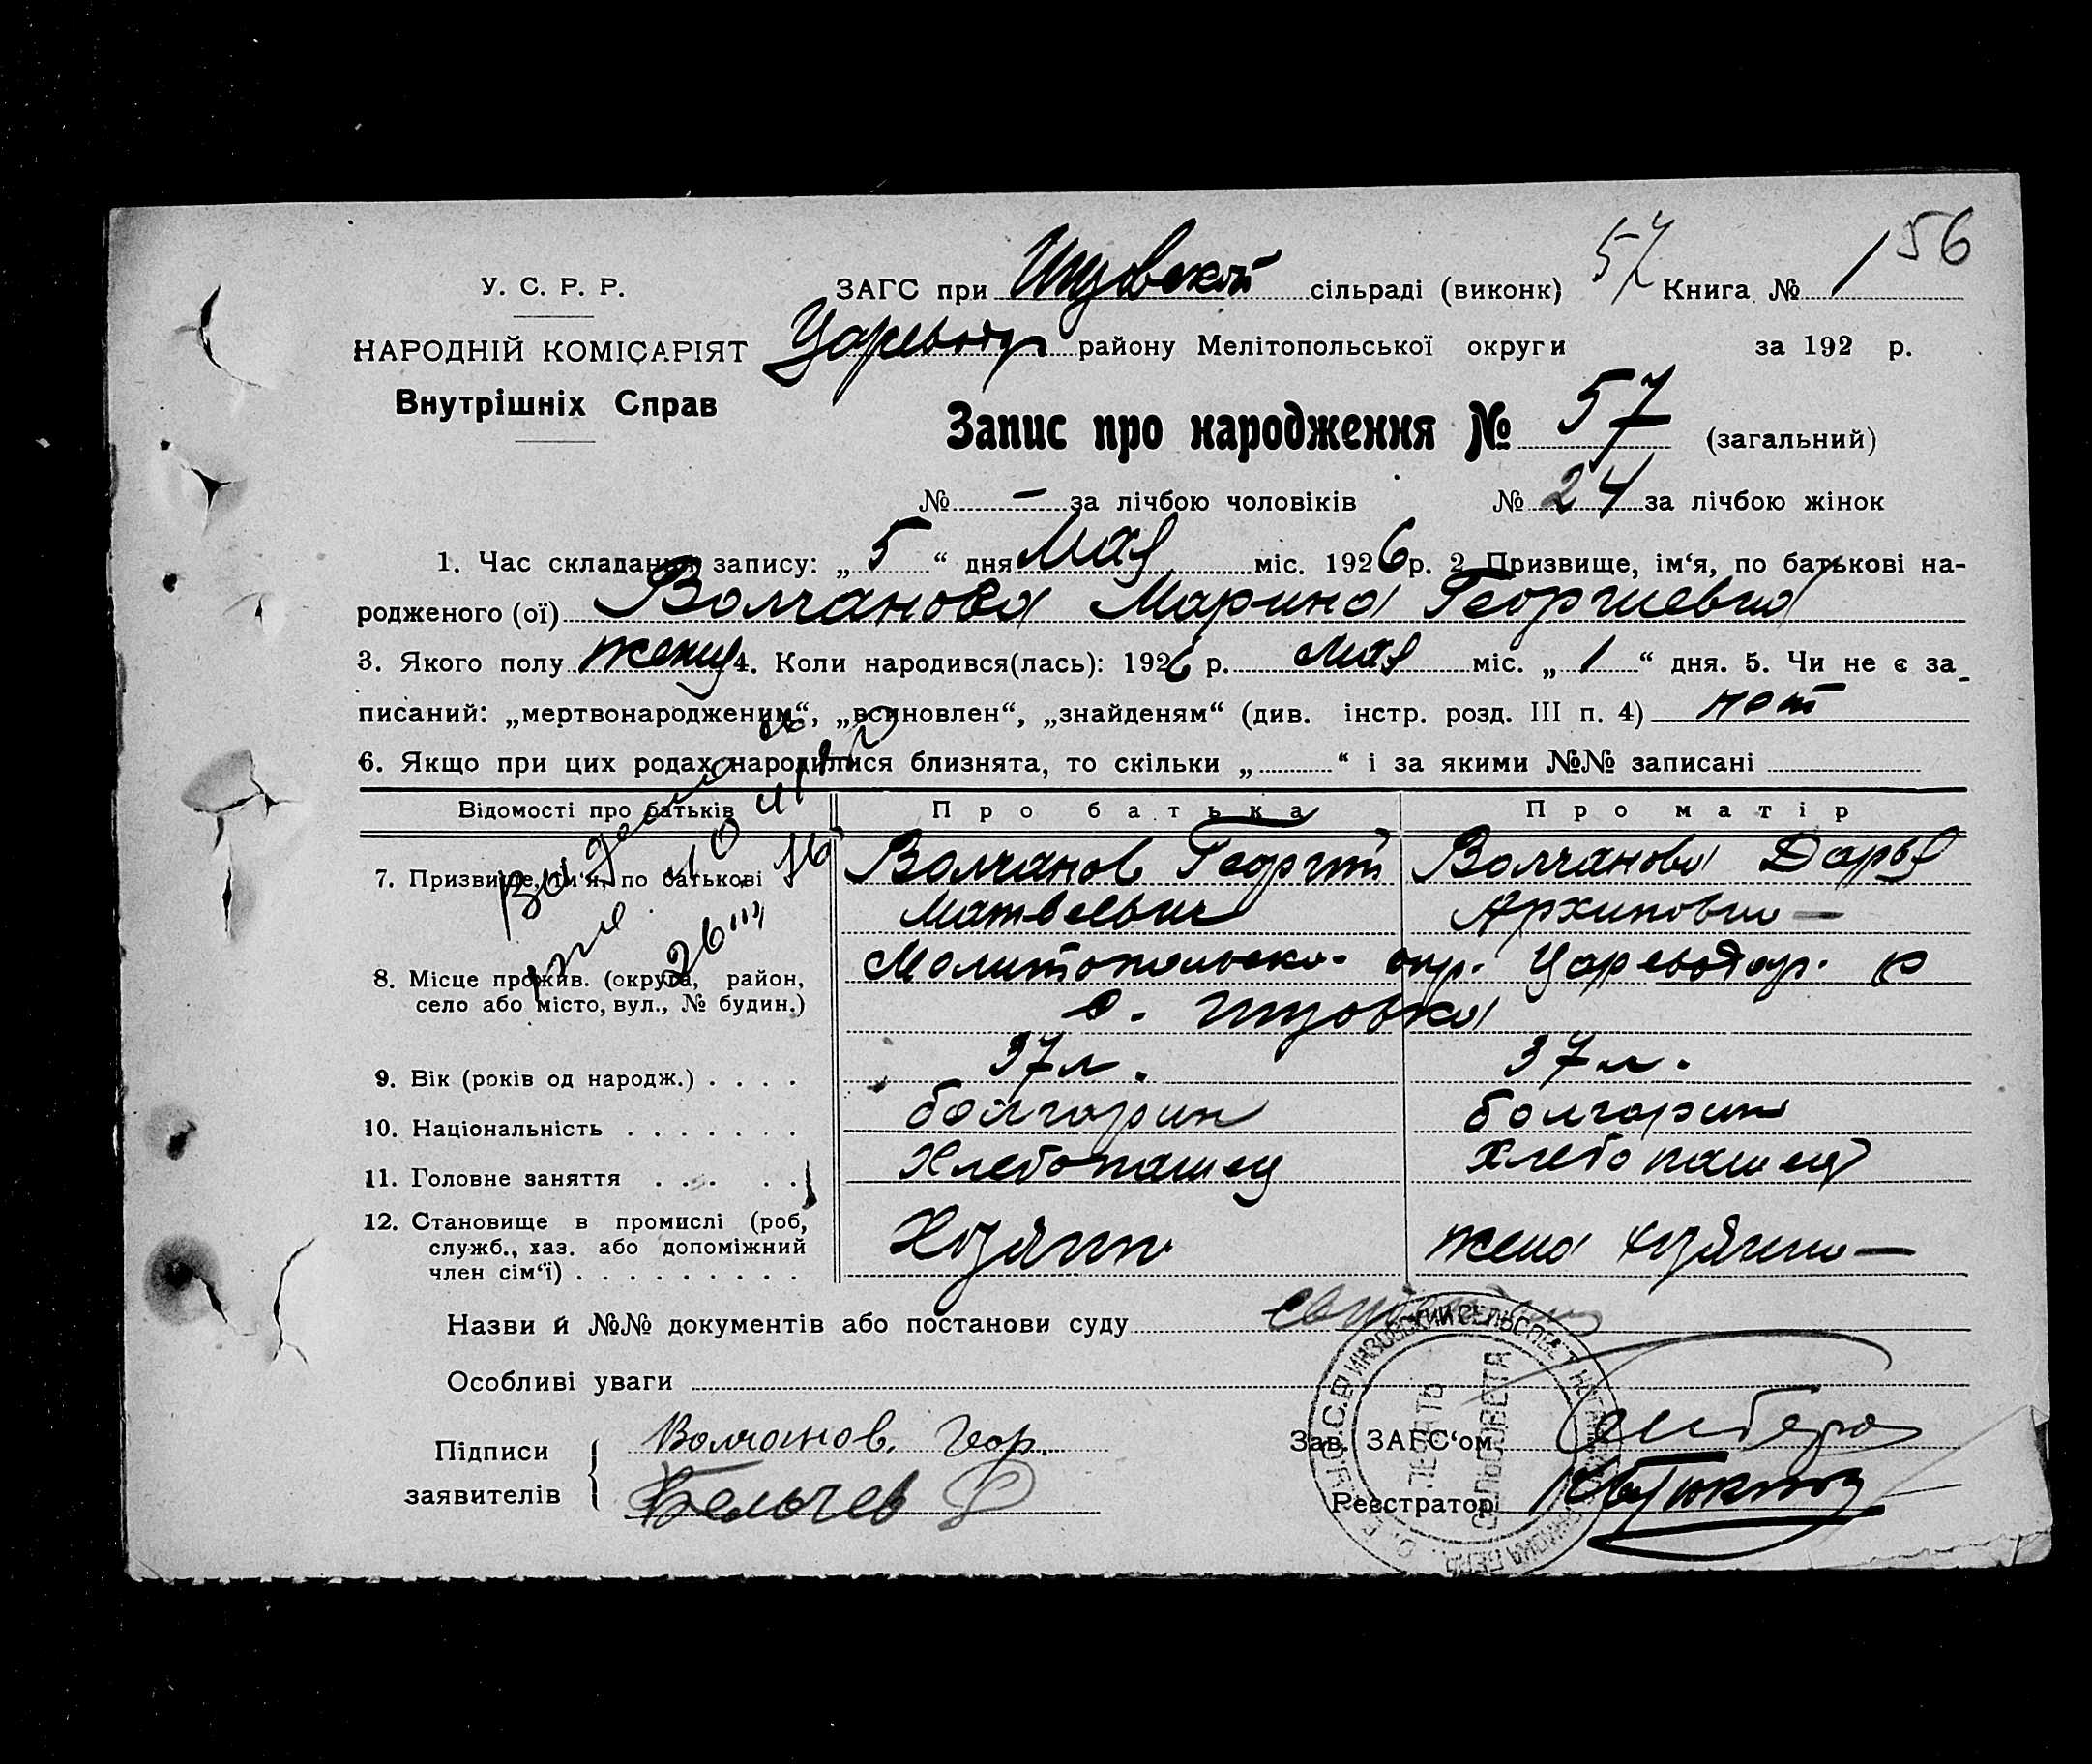 56
У. С. Р. Р.
ЗАГС при сільраді (виконк) 57 Книга № 1
НАРОДНІЙ КОМІСАРІЯТ
Царевод районy Мелітопольської округи за 192 р.
Внутрішніх Справ
Запис про народження № 57 (загальний)
№ – за лічбою чоловіків № 24 за лічбою жінок
1. Час складання запису: „ 5 “ дня Мая міс. 1926 р. 2 Призвище, ім‘я, по батькові на-
родженого (ої) Волчанова Марина Георгиевна
3. Якого полу женщ 4. Коли народився(лась): 1926 р. мая міс. „ 1 “ дня. 5. Чи не є за-
писаний: „мертвонародженим“, „всиновлен“, „знайденям“ (див. інстр. розд. III п. 4) нет
6. Якщо при цих родах народилися близнята, то скільки „ “ і за якими №№ записані
Відомості про батьків Про батька Про матір
7. Призвище, ім‘я, по батькові Волчанов Георгий Волчанова Дарья
Матвеевич Архиповна
8. Місце прожив. (округа, район, Мелитопольско- окр. Цареводар. р
село або місто, вул., № будин.) с.
9. Вік (років од народж.) 37 л. 37 л.
10. Національність болгарин болгарин
11. Головне заняття Хлебопашец Хлебопашец
12. Становище в промислі (роб, Хозяин жена хозяина
служб., хаз. або допоміжний
член сім‘ї)
Назви й №№ документів або постанови суду
Особливі уваги
Підписи Волчанов. Геор. Зав. ЗАГС‘ом
заявителів Бельчев Реєстратор
ИНЗОВСКИЙ СЕЛЬСОВЕТ
ПЕЧАТЬ
СЕЛЬСОВЕТА